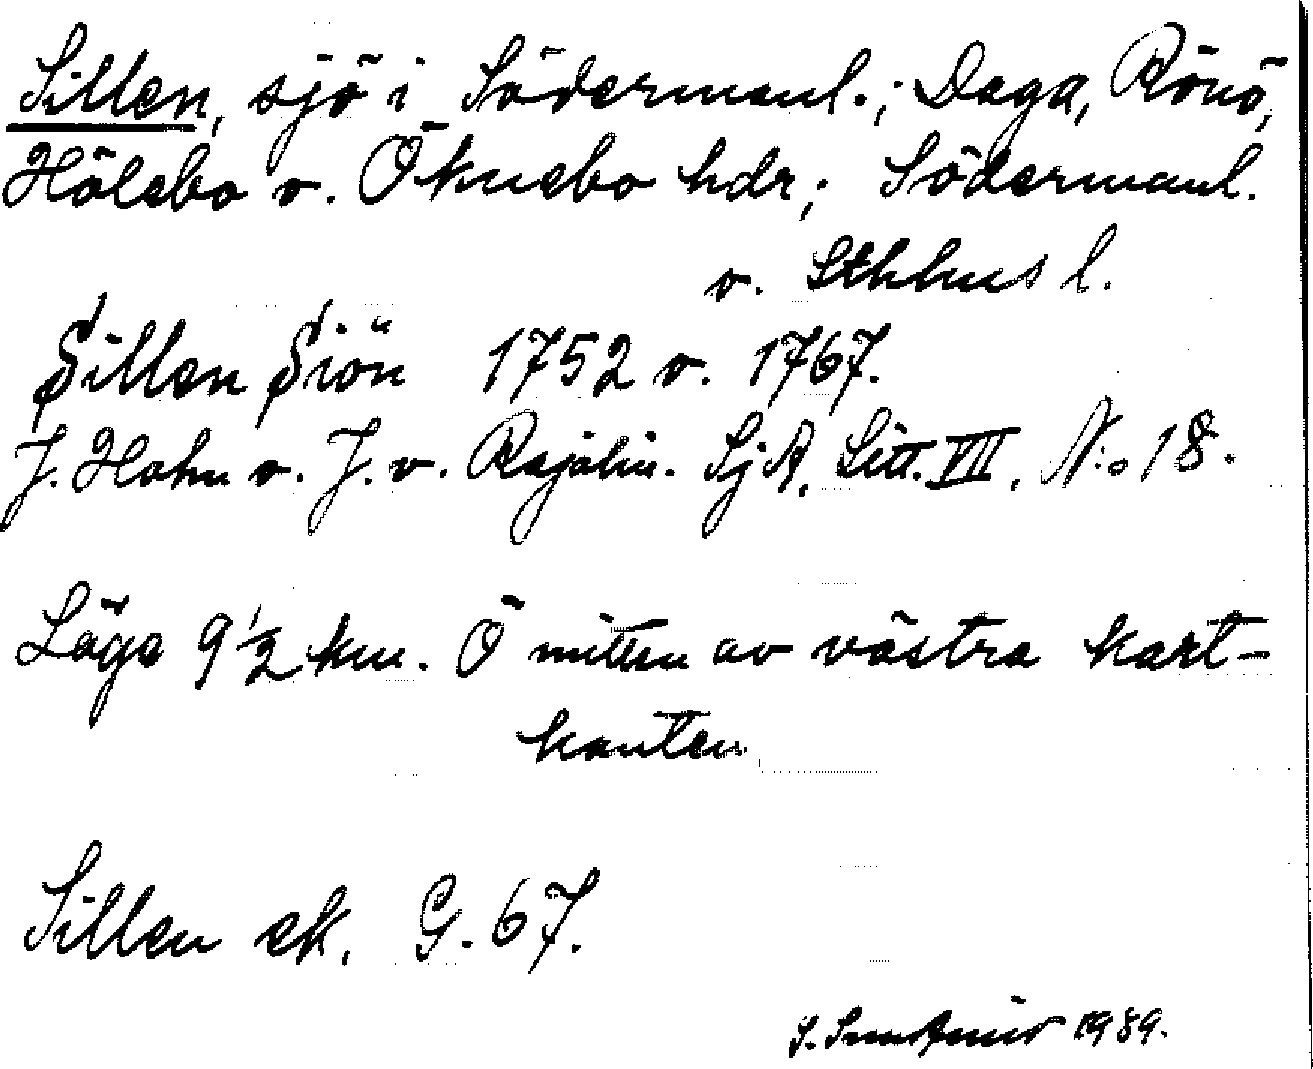 Sillen, sjö i Södermanl.; Daga, Rönö,
Hölebo o. Öknebo hdr; Södermanl.
o. Sthlms l.
Sillen Siön 1752 o. 1767.
J. Hahn o. J. v. Rajalin. SjA, Litt. VII, N:o 18.
Läge 9 1/2 km. Ö mitten av västra kart-
kanten
Sillen ek. G. 67.
S. 1989.